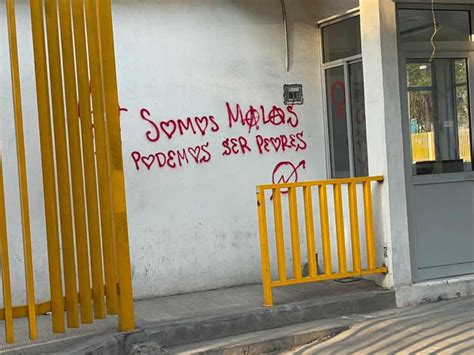 SOMOS MALAS
PODEMOS SER PEORES